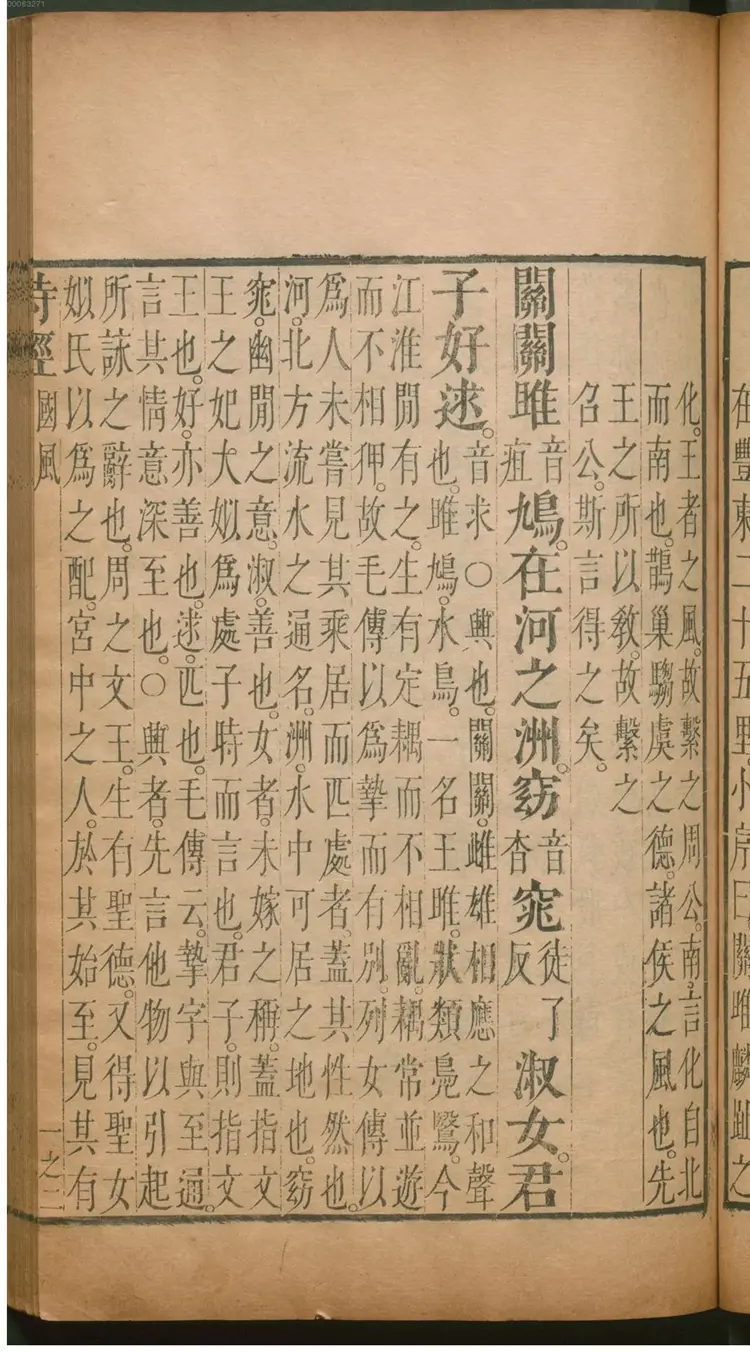 00063271
在豐東二十五里小序曰關雎麟趾之
化。王者之風。故繫之周公。南。言化自北
而南也。鵲巢騶虞之德。諸侯之風也。先
王之所以敎。故繫之
召公。斯言得之矣。
關關雎音疽鳩。在河之洲。窈音杳窕徒了反淑女。君
子好逑。音求○興也。關關。雌雄相應之和聲
也。雎鳩。水鳥。一名王雎。狀類鳧鷖。今
江淮閒有之。生有定耦而不相亂。耦常並遊
而不相狎。故毛傳以爲摯而有別。列女傳以
爲人未嘗見其乘居而匹處者。蓋其性然也。
河。北方流水之通名。洲。水中可居之地也。窈
窕。幽閒之意。淑。善也。女者。未嫁之稱。蓋指文
王之妃大姒爲處子時而言也。君子。則指文
王也。好。亦善也。逑。匹也。毛傳云。摯字與至通。
言其情意深至也。○興者。先言他物以引起
所詠之辭也。周之文王。生有聖德。又得聖女
姒氏以爲之配。宮中之人。於其始至。見其有
詩經國風 一之二